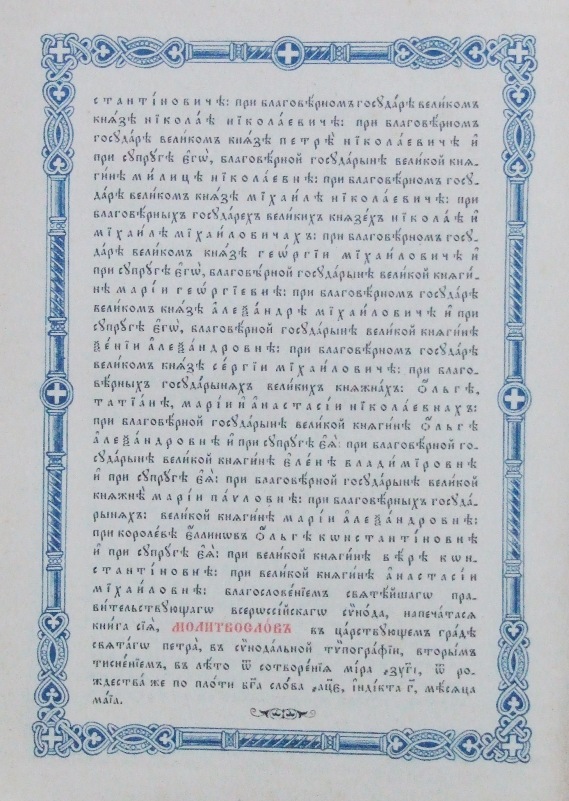 стантї́новичѣ: при благовѣ́рномъ госꙋда́рѣ вели́комъ
кнѧ́зѣ нїкола́ѣ нїкола́евичѣ: при благовѣ́рномъ
госꙋда́рѣ вели́комъ кнѧ́зѣ петрѣ̀ нїкола́евичѣ и҆
при сꙋпрꙋ́гѣ є҆гѡ̀, благовѣ́рной госꙋда́рынѣ вели́кой кнѧ-
ги́нѣ ми́лицѣ нїкола́евнѣ: при благовѣ́рномъ госꙋ-
да́рѣ вели́комъ кнѧ́зѣ мїхаи́лѣ нїкола́евичѣ: при
благовѣ́рныхъ госꙋда́рехъ вели́кихъ кнѧзе́хъ нїкола́ѣ и҆
мїхаи́лѣ мїхаи́ловичахъ: при благовѣ́рномъ госꙋ-
да́рѣ вели́комъ кнѧ́зѣ геѡ́ргїи мїхаи́ловичѣ и҆
при сꙋпрꙋ́гѣ є҆гѡ̀, благовѣ́рной госꙋда́рынѣ вели́кой кнѧги́-
нѣ марі́и геѡ́ргїевнѣ: при благовѣ́рномъ госꙋда́рѣ
вели́комъ кнѧ́зѣ а҆леѯа́ндрѣ мїхаи́ловичѣ и҆ при
сꙋпрꙋ́гѣ є҆гѡ̀, благовѣ́рной госꙋда́рынѣ вели́кой кнѧги́нѣ
ѯе́нїи а҆леѯа́ндровнѣ: при благовѣ́рномъ госꙋда́рѣ
вели́комъ кнѧ́зѣ се́ргїи мїхаи́ловичѣ: при благо-
вѣ́рныхъ госꙋда́рынѧхъ вели́кихъ кнѧжна́хъ: Ѻ҆́льгѣ,
татїа́нѣ, марі́и и҆ а҆настасі́и нїкола́евнахъ:
при благовѣ́рной госꙋда́рынѣ вели́кой кнѧги́нѣ Ѻ҆́льгѣ
а҆леѯа́ндровнѣ и҆ при сꙋпрꙋ́гѣ є҆ѧ̀: при благовѣ́рной го-
сꙋда́рынѣ вели́кой кнѧги́нѣ є҆ле́нѣ влади́мїровнѣ
и҆ при сꙋпрꙋ́гѣ є҆ѧ̀: при благовѣ́рной госꙋда́рынѣ вели́кой
кнѧжнѣ̀ марі́и па́ѵловнѣ: при благовѣ́рныхъ госꙋда́-
рынѧхъ: вели́кой кнѧги́нѣ марі́и а҆леѯа́ндровнѣ:
при короле́вѣ є҆́ллинѡвъ Ѻ҆́льгѣ кѡнстанті́новнѣ
и҆ при сꙋпрꙋ́гѣ є҆ѧ̀: при вели́кой кнѧги́нѣ вѣ́рѣ кѡн-
стантї́новнѣ: при вели́кой кнѧги́нѣ а҆настасі́и
мїхаи́ловнѣ: благослове́нїемъ свѧтѣ́йшагѡ пра-
ви́тельствꙋющагѡ всерѡссі́йскагѡ сѷно́да, напеча́тасѧ
кни́га сїѧ̀, МОЛИТВОСЛО́ВЪ въ ца́рствꙋющемъ гра́дѣ
свѧта́гѡ петра̀, въ сѷнода́льной тѷпогра́фїи, вторы́мъ
тисне́нїемъ, въ лѣ́то ѿ сотворе́нїѧ мі́ра ҂зꙋгі҃, ѿ ро-
ждества́ же по пло́ти бг҃а сло́ва ҂ацє҃, інді́кта г҃, мѣ́сѧца
ма́їа.